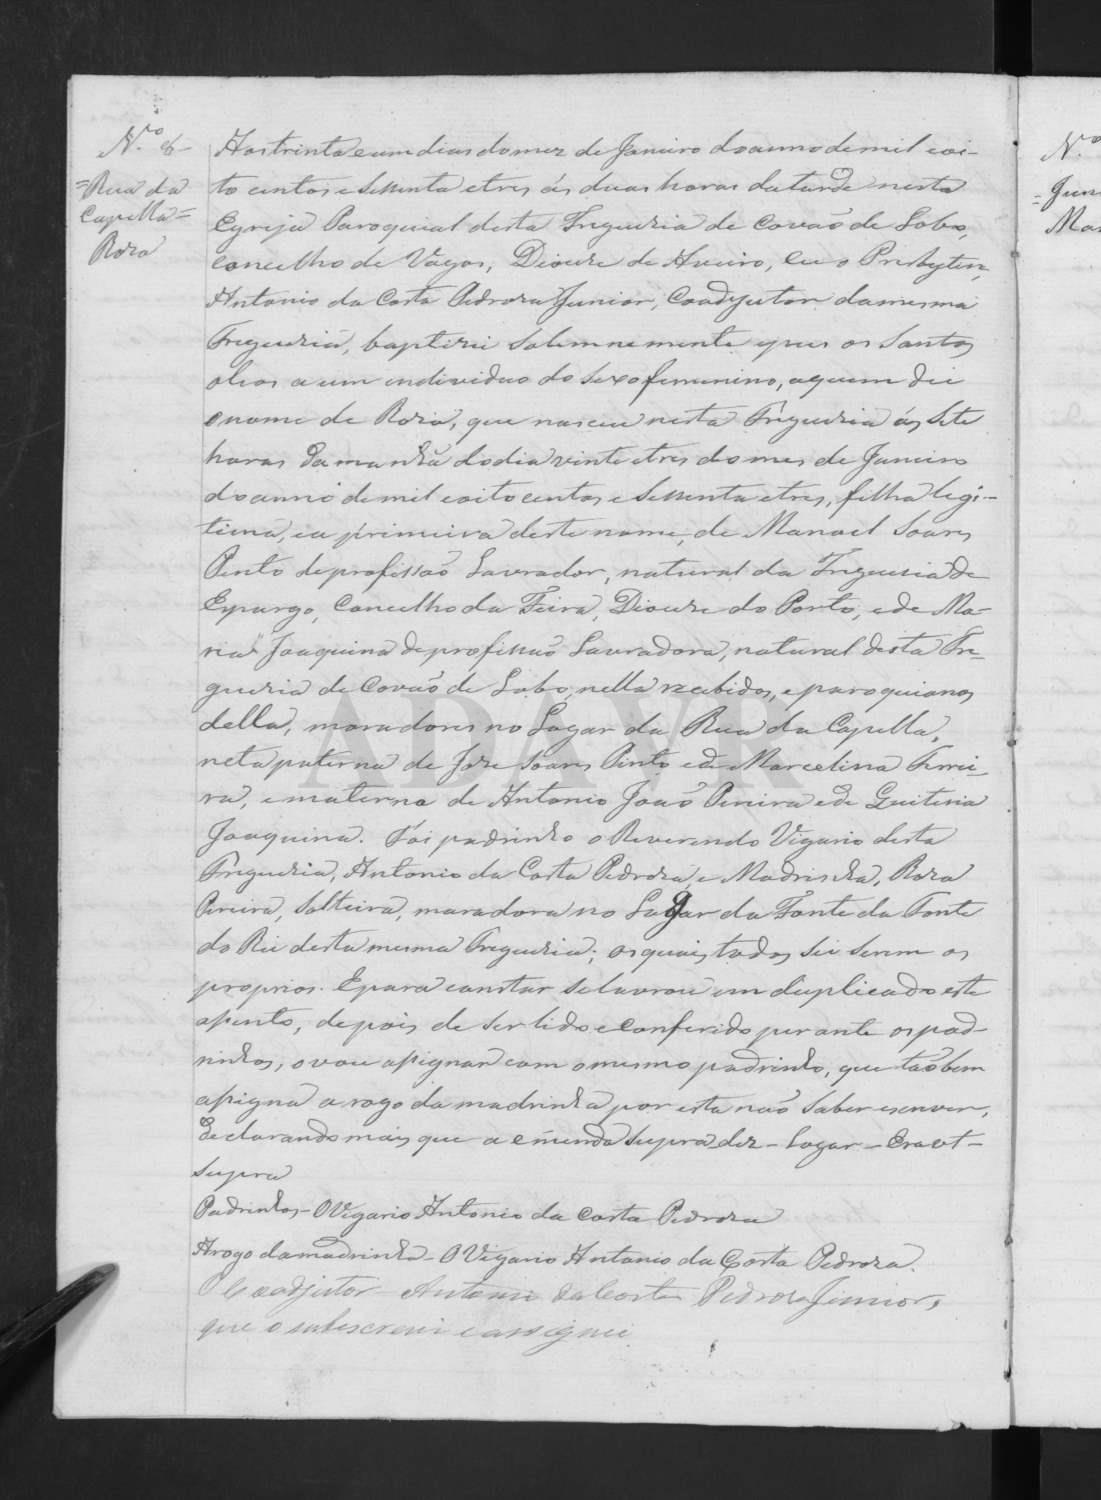 N.º 8
=Rua da
Capella=
Roza
Aos trinta e um dias do mez de Janeiro do anno de mil eoi-
to centos e sessenta e tres ás duas horas da tarde nesta
Egreja Paroquial desta Freguezia de Covaõ de Lobo,
concelho de Vagos, Diocese de Aveiro, eu o Presbytero,
Antonio da Costa Pedroza Junior, Coadjutor da mesma
Freguezia, baptizei solemnemente e pus os Santos
oleos a um individuo do sexo femenino, a quem dei
o nome de Roza, que nasceu nesta Freguezia ás sete
horas da manhã do dia vinte e tres do mes de Janeiro
do anno de mil e oito centos e sessenta e tres, filha legi-
tima, e a primeira deste nome, de Manoel Soares
Pinto de profissaõ Lavrador, natural da Freguesia de
Espargo, Concelho da Feira, Diocese do Porto, e de Ma-
ria Joaquina de profissaõ Lavradora, natural desta Fre-
guezia de Covaõ de Lobo, nella recebidos, e paroquianos
della, moradores no Lugar da Rua da Capella,
neta paterna de Joze Soares Pinto e de Marcelina Ferrei-
ra, e materna de Antonio Joaõ Pereira e de Quiteria
Joaquina. Foi padrinho o Reverendo Vigario desta
Freguezia, Antonio da Costa Pedroza, e Madrinha, Roza
Pereira, Solteira, moradora no Lugar da Fonte da Fonte
do Rei desta mesma Freguezia; os quais todos sei serem os
proprios. E para constar se lavrou em duplicado este
assento, depois de ser lido e conferido perante os pad-
rinhos, o vou assignar com o mesmo padrinho, que taõbem
assigna a rogo da madrinha por esta naõ saber escrever,
Declarando mais que a emenda supra diz - Lugar - Era ut-
supra
Padrinhos - O Vigario Antonio da Costa Pedroza
A rogo da madrinha - O Vigario Antonio da Costa Pedroza.
O Coadjutor Antonio da Costa Pedroza Junior,
que o subscrevi e assignei
N.º
=Jun
Ma
ADAVR